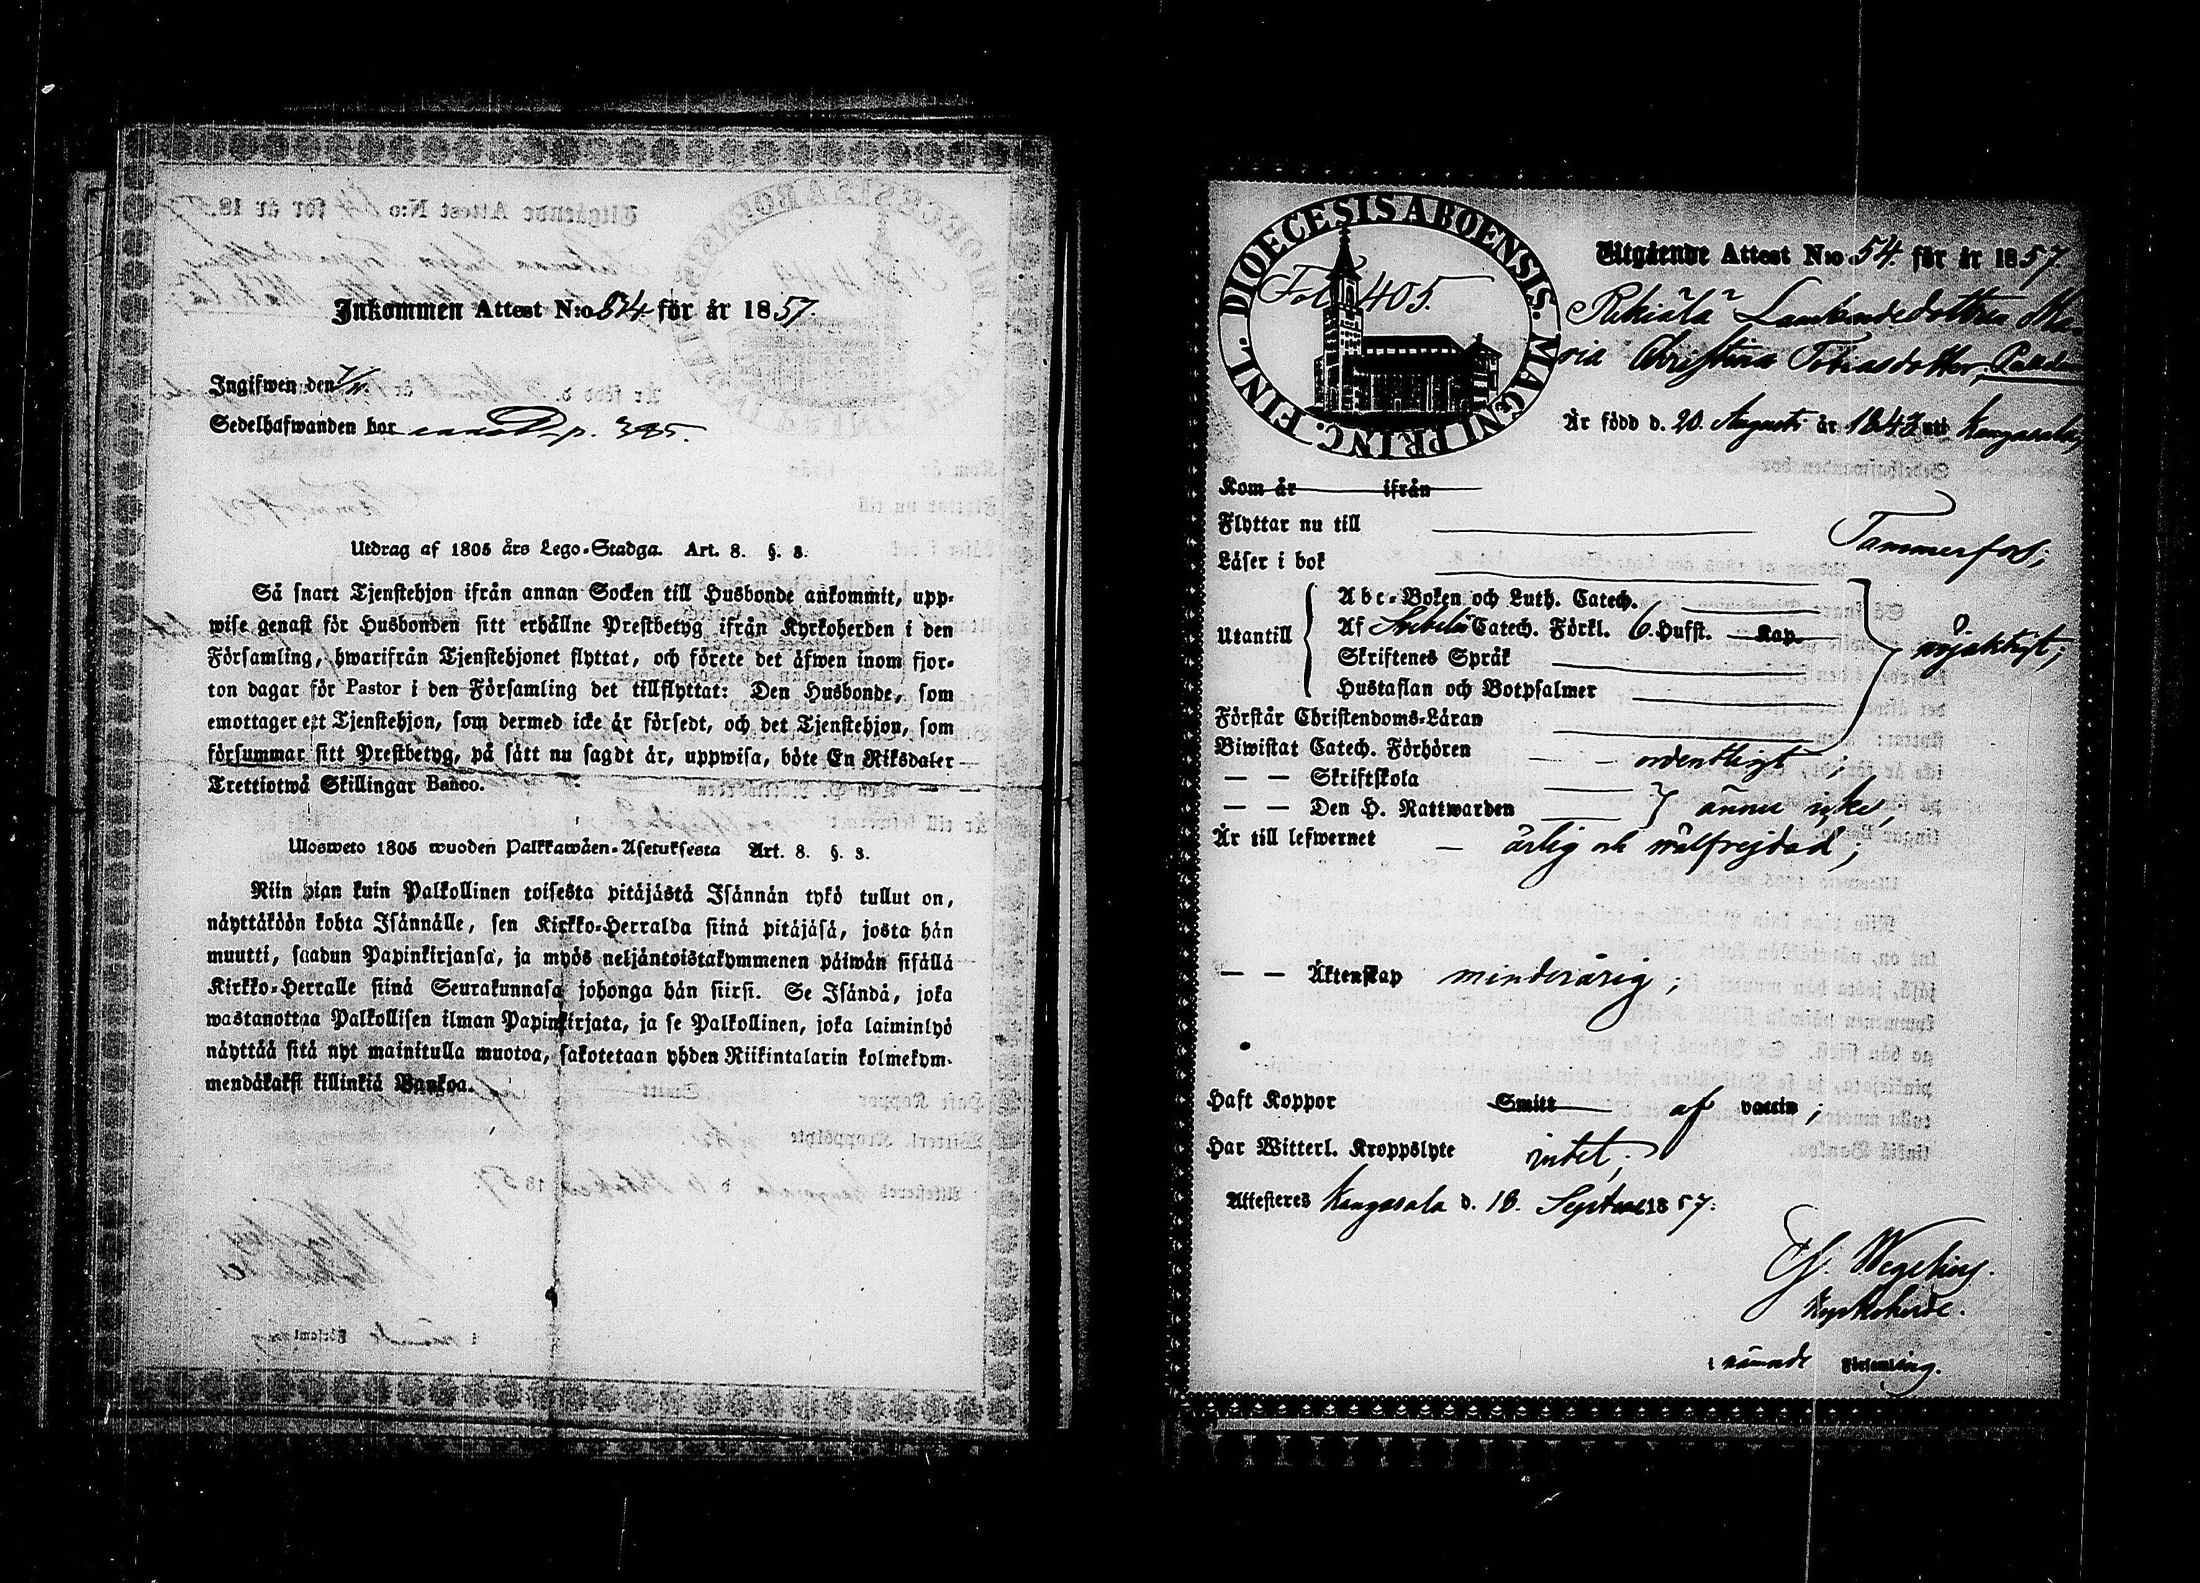 Inkommen Attest N:o 534 för år 1857.
Ingifwen den
Sedelhafwanden bor p. 385.
Utdrag af 1805 års Lego-Stadga. Art. 8. §. 3.
Så snart Tjenstehjon ifrån annan Socken till Husbonde ankommit, upp-
wise genast för Husbonden sitt erhållne Prestbetyg ifrån Kyrkoherden i den
Församling, hwarifrån Tjenstehjonet flyttat, och förete det äfwen inom fjor-
ton dagar för Pastor i den Församling det tillflyttat: Den Husbonde, som
emottager ett Tjenstehjon, som dermed icke är försedt, och det Tjenstehjon, som
försummar sitt Prestbetyg, på sätt nu sagdt är, uppwisa, böte En Riksdaler
Trettiotwå Skillingar Banco.
Ulosweto 1805 wuoden Palkkawäen-Asetuksesta Art. 8. §. 3.
Niin pian kuin Palkollinen toisesta pitäjästä Isännän tykö tullut on,
näyttäköön kohta Isännälle, sen Kirkko-Herralda siinä pitäjäsä, josta hän
muutti, saadun Papinkirjansa, ja myös neljäntoistakymmenen päiwän sisällä
Kirkko-Herralle siinä Seurakunnasa johonga hän siirsi. Se Isändä, joka
wastanottaa Palkollisen ilman Papinkirjata, ja se Palkollinen, joka laiminlyö
näyttää sitä nyt mainitulla muotoa, sakotetaan yhden Riikintalarin kolmekym-
mendäkaksi killinkiä Bankoa.
DIOECESIS ABOENSIS. MAGNI PRINC. FINL.
Fol. 405.
Utgående Attest N:o 54. för år 1857.
Lambondedottren Ma-
ria Christina Tobiasdotter,
Är född d. 20 Augusti år 1843 uti Kangasala,
Kom år ifrån
Flyttar nu till Tammerfors;
Läser i bok
Utantill
Abc-Boken och Luth. Catech.
Af Svebelii Catech. Förkl. 6. Hufst. Kap.
Skriftenes Språk
Hustaflan och Botpsalmer
nöjaktigt;
Förstår Christendoms-Läran
Biwistat Catech. Förhören ordentligt;
— — Skriftskola
— — Den H. Nattwarden
ännu icke;
Är till lefwernet — ärlig och wälfrejdad;
— — Äktenskap minderårig;
Haft Koppor Smitt af vaccin;
Har Witterl. Kroppslyte intet;
Attesteres Kangasala d. 18. 1857.
Kyrkoherde.
i nämnde Församling.